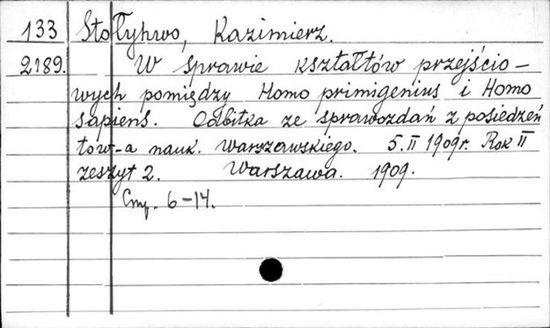 133 Stołyhwo, Kazimierz.
2189. W sprawie kształtów przejścio-
wych pomiędzy Homo primigenius i Homo
sapiens. Odbitka ze sprawozdań z posiedzeń
tow-a nauk. Warszawskiego. 5.II 1909r. Rok II
zeszyt 2. Warszawa. 1909.
Cmp. 6-14.